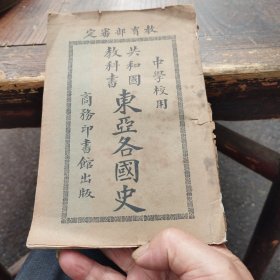 教育部審定
中學校用
共和國
教科書
東亞各國史
商務印書館出版